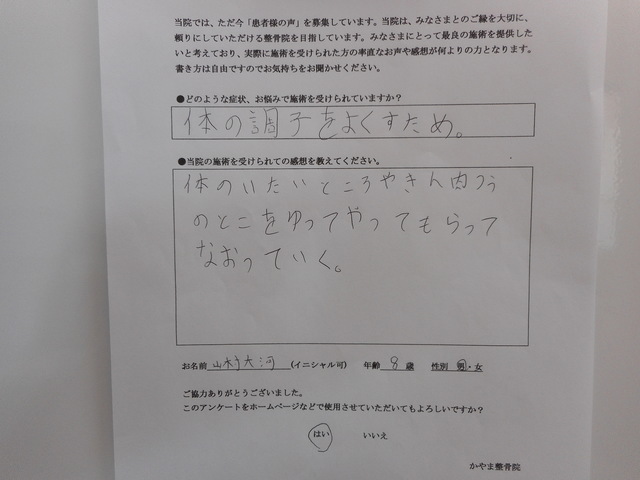 当院では、ただ今「患者様の声」を募集しています。当院は、みなさまとのご縁を大切に、
頼りにしていただける整骨院を目指しています。みなさまにとって最良の施術を提供した
いと考えており、実際に施術を受けられた方の率直なお声や感想が何よりの力となります。
書き方は自由ですのでお気持ちをお聞かせください。
●どのような症状、お悩みで施術を受けられていますか？
体の調子をよくすため。
●当院の施術を受けられての感想を教えてください。
体のいたいところやきん肉つう
のとこをゆってやってもらって
なおっていく。
お名前 山村大河 （イニシャル可） 年齢 8 歳 性別 男・女
ご協力ありがとうございました。
このアンケートをホームページなどで使用させていただいてもよろしいですか？
はい いいえ
かやま整骨院